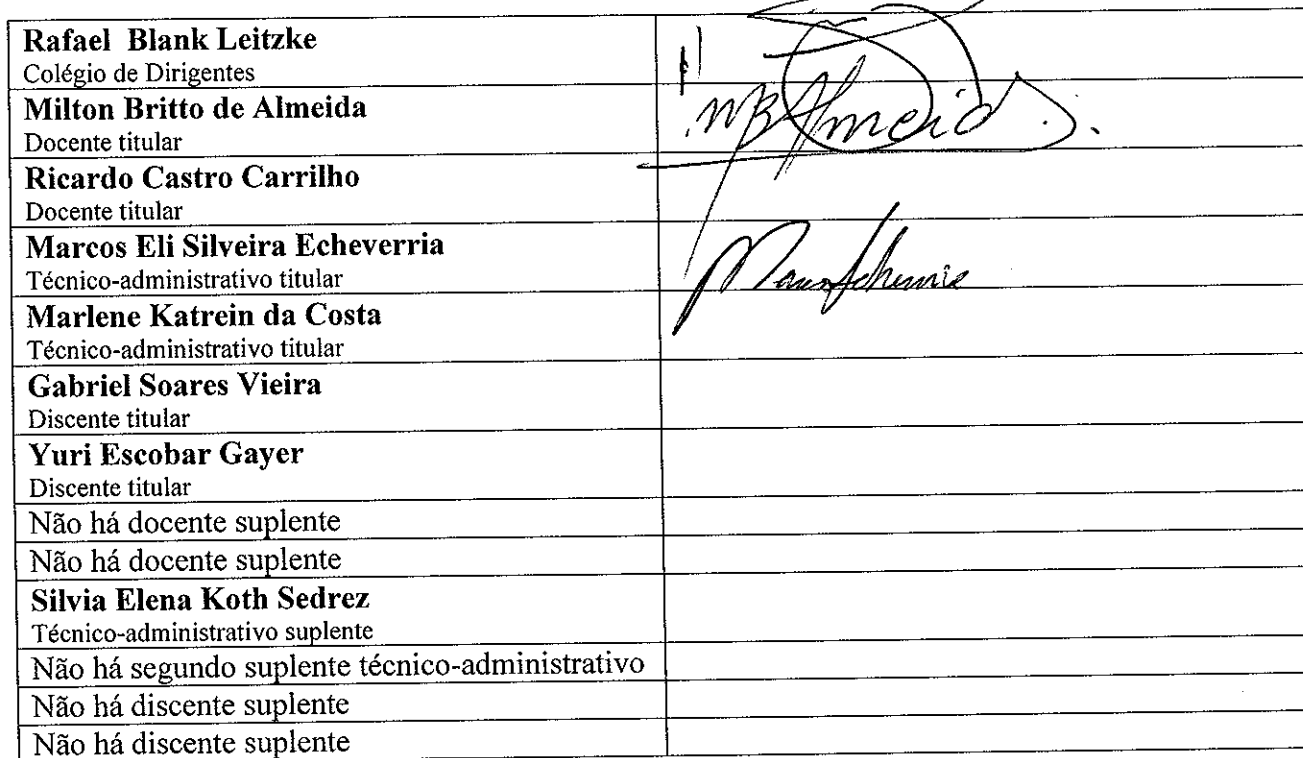 Rafael Blank Leitzke
Colégio de Dirigentes
Milton Britto de Almeida
MBAlmeida.
Docente titular
Ricardo Castro Carrilho
Docente titular
Marcos Eli Silveira Echeverria
Técnico-administrativo titular
Marlene Katrein da Costa
Técnico-administrativo titular
Gabriel Soares Vieira
Discente titular
Yuri Escobar Gayer
Discente titular
Não há docente suplente
Não há docente suplente
Silvia Elena Koth Sedrez
Técnico-administrativo suplente
Não há segundo suplente técnico-administrativo
Não há discente suplente
Não há discente suplente